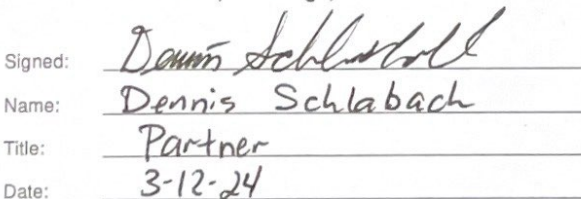 Signed: Dennis Schlabach
Name: Dennis Schlabach
Title: Partner
Date: 3-12-24